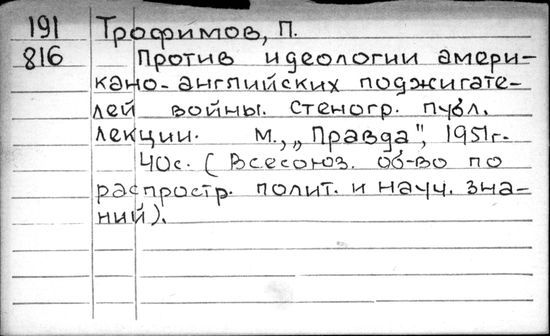 191 Трофимов, П.
816 Против идеологии амери-
кано-английских поджигате-
лей войны. Стеногр. публ.
лекции. М., „Правда", 1951г.
40с. (Всесоюз. об-во по
распростр. полит. и науч. зна-
ний).